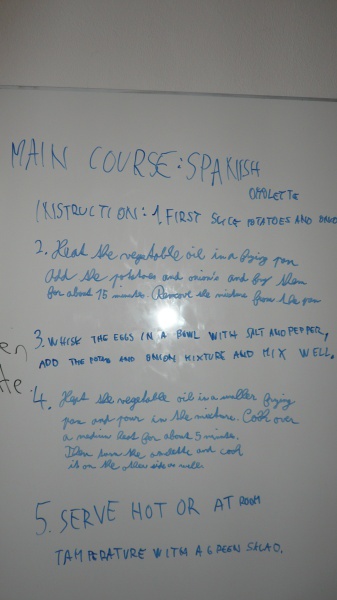 MAIN COURSE: SPANISH
OMLETTE
INSTRUCTION: 1. FIRST SLICE POTATOES AND
2. Heat the vegetable oil in a frying pan
Add the potatoes and onion's and fry them
for about 15 minutes. Remove the mixture from the pan
3. WHISK THE EGGS IN A BOWL WITH SALT AND PEPPER,
ADD THE POTATO AND ONION MIXTURE AND MIX WELL.
en
te.
4. Heat the vegetable oil in a smaller frying
pan and pour in the mixture. Cook over
a medium heat for about 5 minutes.
Then turn the omelette and cook
it on the other side as well.
5. SERVE HOT OR AT ROOM
TAMPERATURE WITH A GREEN SALAD.